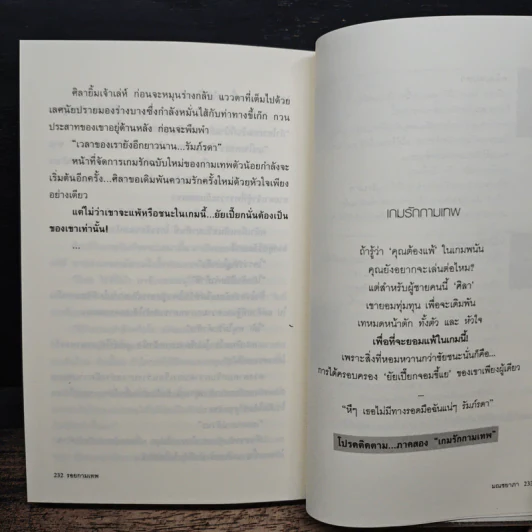 ศิลายิ้มเจ้าเล่ห์ ก่อนจะหมุนร่างกลับ แววตาที่เต็มไปด้วย
เลศนัยปรายมองร่างบางซึ่งกำลังหมั่นไส้กับท่าทางขี้เก๊ก กวน
ประสาทของเขาอยู่ด้านหลัง ก่อนจะพึมพำ
"เวลาของเรายังอีกยาวนาน...รัมภ์รดา"
หน้าที่จัดการเกมรักฉบับใหม่ของกามเทพตัวน้อยกำลังจะ
เริ่มต้นอีกครั้ง...ศิลาขอเดิมพันความรักครั้งใหม่ด้วยหัวใจเพียง
อย่างเดียว
แต่ไม่ว่าเขาจะแพ้หรือชนะในเกมนี้...ยัยเปี๊ยกนั่นต้องเป็น
ของเขาเท่านั้น!
...
232 รอยกามเทพ
เกมรักกามเทพ
ถ้ารู้ว่า 'คุณต้องแพ้' ในเกมพนัน
คุณยังอยากจะเล่นต่อไหม?
แต่สำหรับผู้ชายคนนี้ 'ศิลา'
เขายอมทุ่มทุน เพื่อจะเดิมพัน
เทหมดหน้าตัก ทั้งตัว และ หัวใจ
เพื่อที่จะยอมแพ้ในเกมนี้!
เพราะสิ่งที่หอมหวานกว่าชัยชนะนั่นก็คือ...
การได้ครอบครอง 'ยัยเปี๊ยกจอมขี้แย' ของเขาเพียงผู้เดียว
–
"หึๆ เธอไม่มีทางรอดมือฉันแน่ๆ รัมภ์รดา"
โปรดติดตาม...ภาคสอง "เกมรักกามเทพ"
มณชยาภา 233